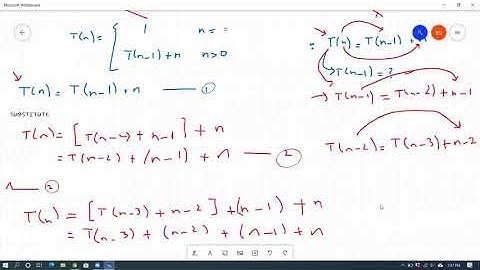 Microsoft Whiteboard
T(n) = { 1 n =
T(n-1)+n n>0
T(n) = T(n-1) + n —— ①
SUBSTITUTE
T(n) = [T(n-2) + n-1] + n
= T(n-2) + (n-1) + n —— ②
②
T(n) = [T(n-3) + n-2] + (n-1) + n
= T(n-3) + (n-2) + (n-1) + n
∵ T(n) = T(n-1) + n
T(n-1) = ?
→ T(n-1) = T(n-2) + n-1
T(n-2) = T(n-3) + n-2